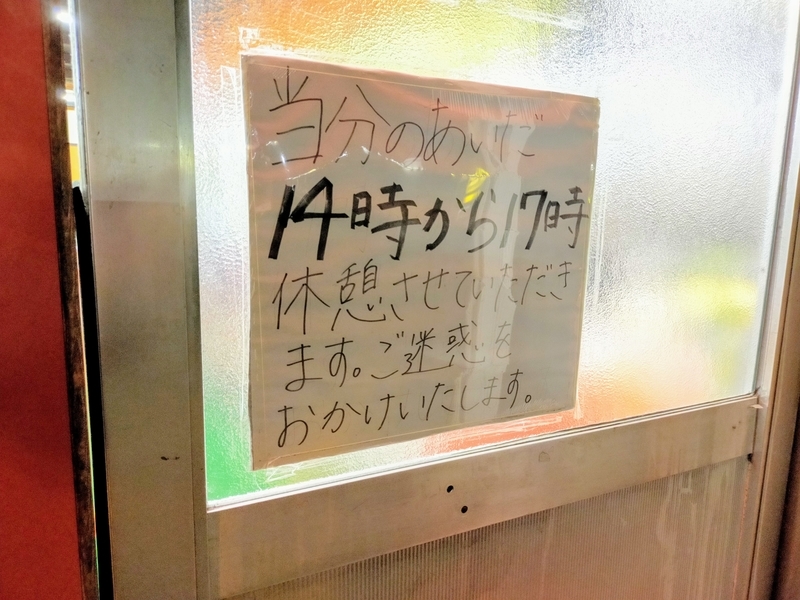 当分のあいだ
14時から17時
休憩させていただき
ます。ご迷惑を
おかけいたします。